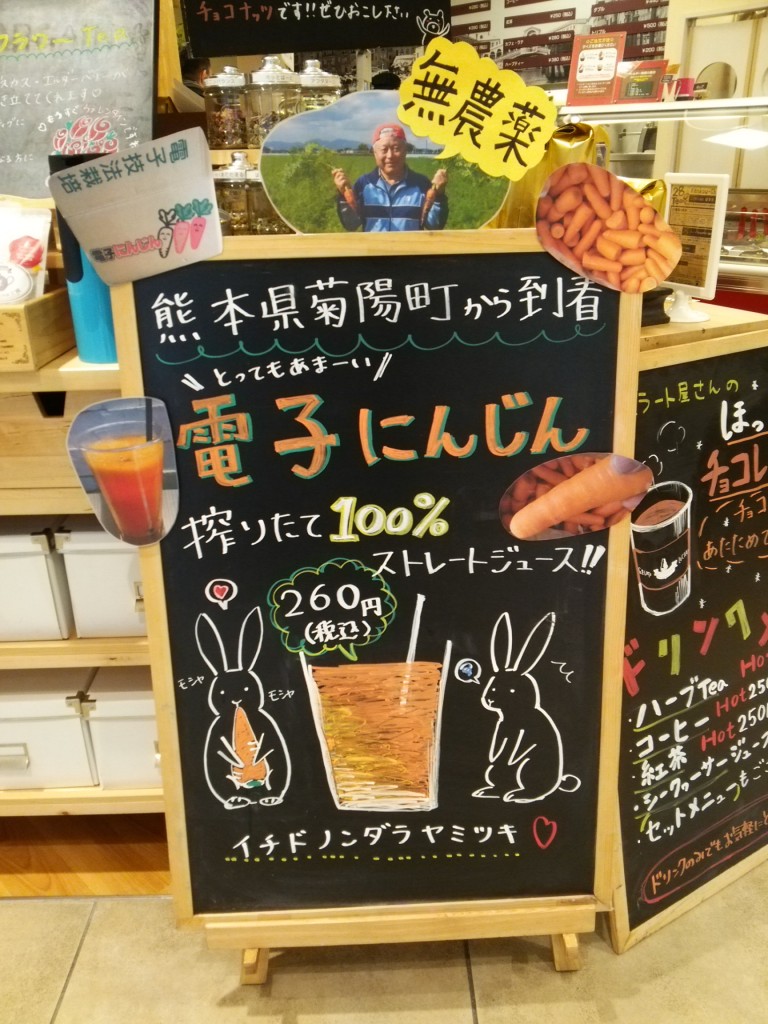 チョコナッツです!!ぜひおこし下さい
フラワーTea
無農薬
電子技法栽培
熊本県菊陽町から到着
\とってもあまーい/
電子にんじん
搾りたて100%
ストレートジュース!!
260円
(税込)
モシャ
モシャ
イチドノンダラヤミツキ♡
ラート屋さんの
ほっ
チョコレ
チョコ
あたためて
ドリンクメ
・ハーブTea Hot
・コーヒー Hot250
・紅茶 Hot250
・シークヮーサージュース
・セットメニューもご
ドリンクのみでもお気軽にど